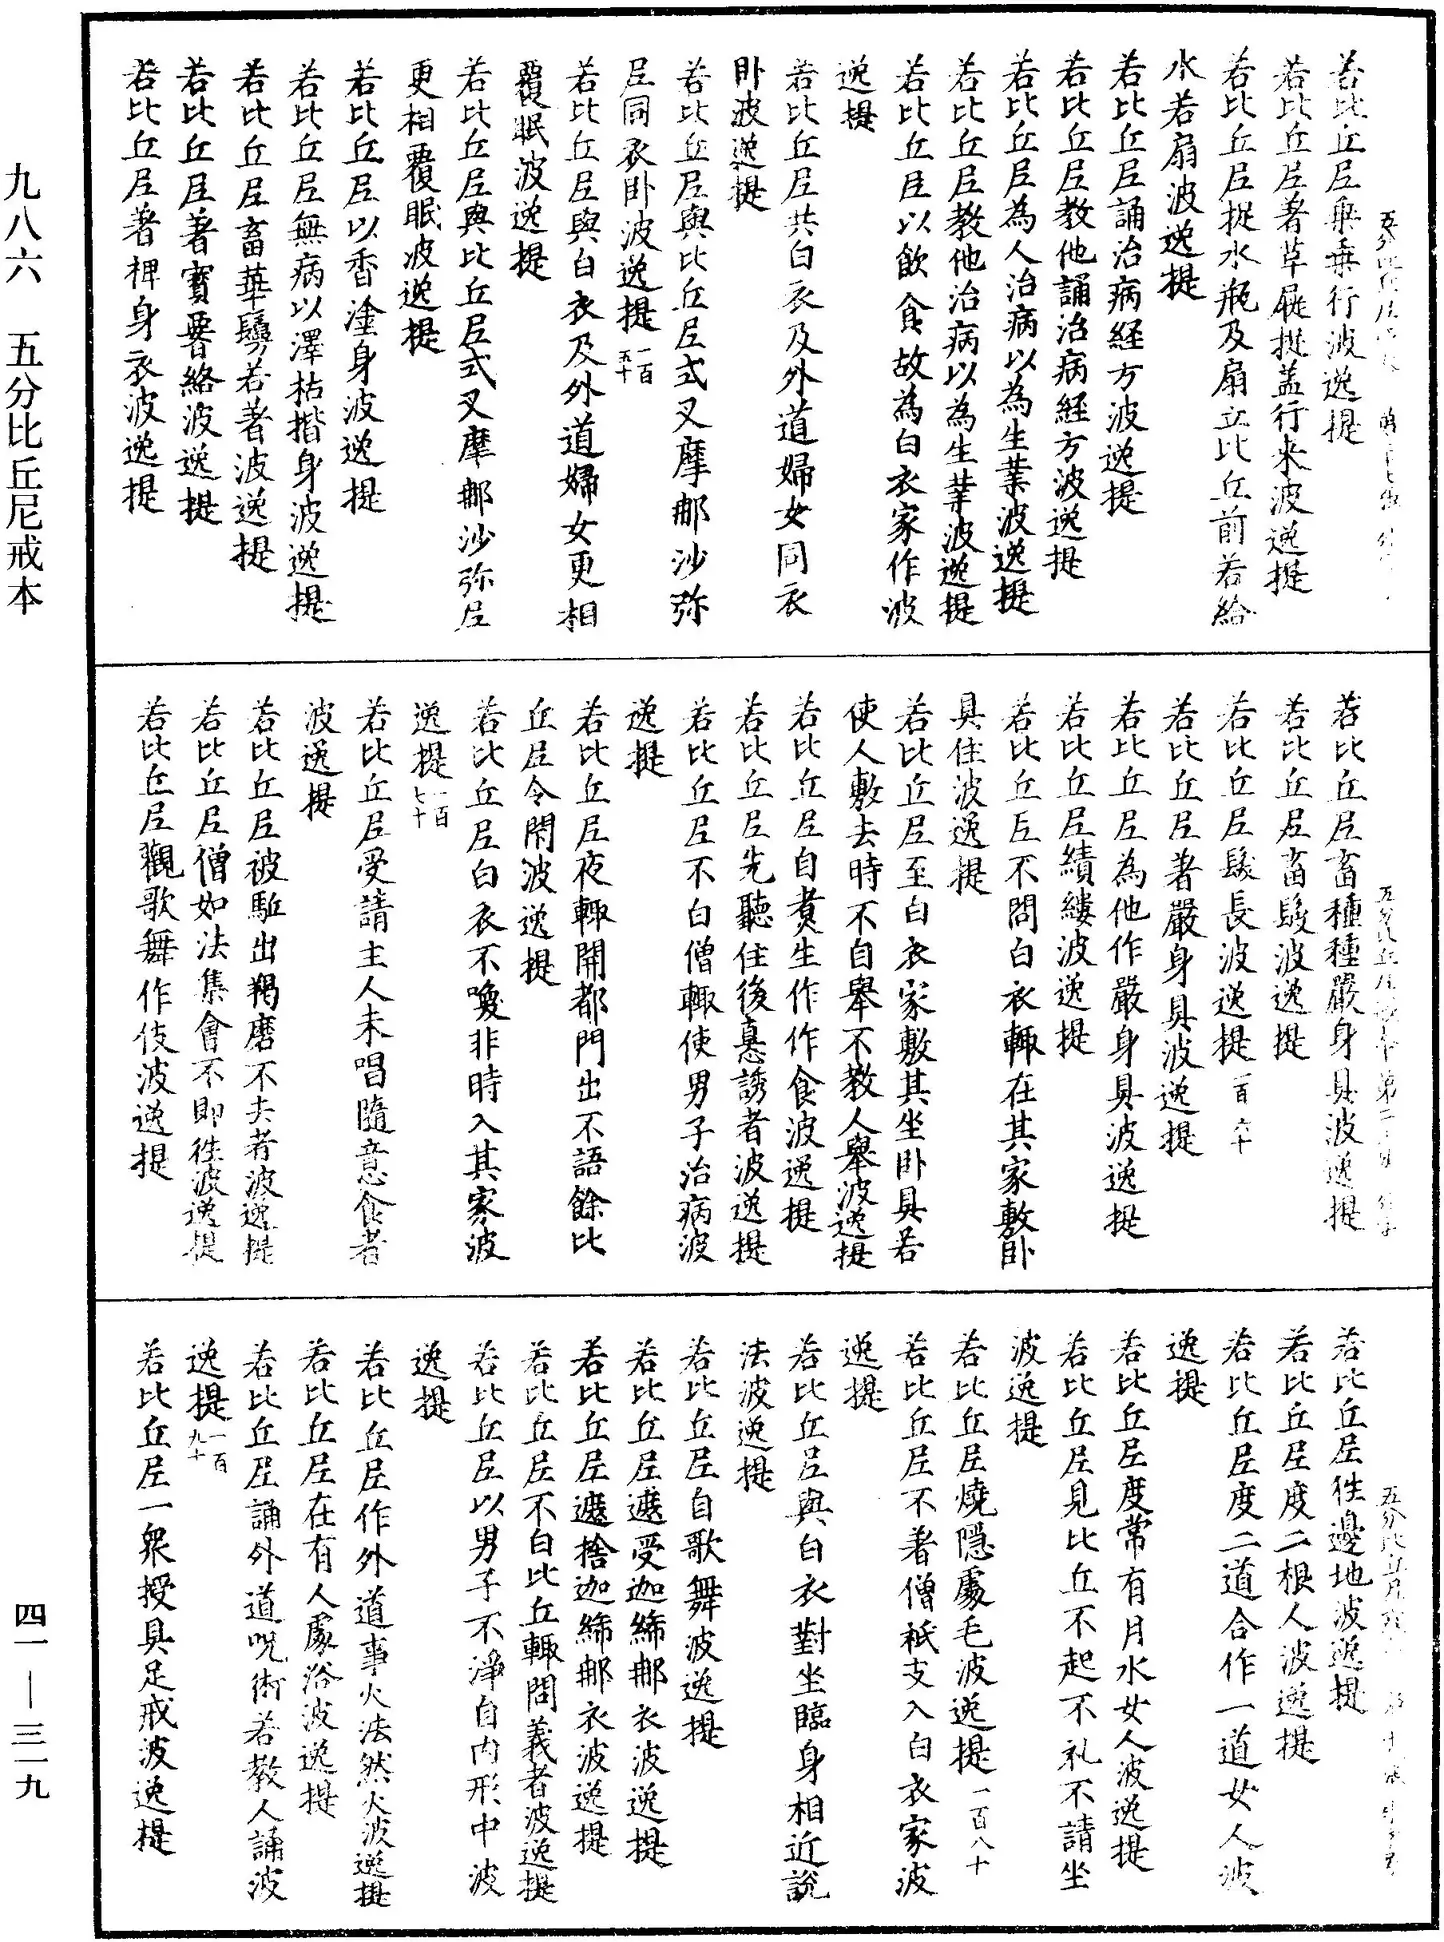 若比丘尼乘乘行波逸提
若比丘尼著草屣捉蓋行來波逸提
若比丘尼捉水瓶及扇立比丘前若給
水若扇波逸提
若比丘尼誦治病經方波逸提
若比丘尼教他誦治病經方波逸提
若比丘尼為人治病以為生業波逸提
若比丘尼教他治病以為生業波逸提
若比丘尼以飲食故為白衣家作波
逸提
若比丘尼共白衣及外道婦女同衣
卧波逸提
若比丘尼與比丘尼式叉摩那沙弥
尼同衣卧波逸提一百五十
若比丘尼與白衣及外道婦女更相
覆眠波逸提
若比丘尼與比丘尼式叉摩那沙弥尼
更相覆眠波逸提
若比丘尼以香塗身波逸提
若比丘尼無病以澤枯揩身波逸提
若比丘尼畜華鬘若著波逸提
若比丘尼著寶瓔絡波逸提
若比丘尼著裨身衣波逸提
若比丘尼畜種種嚴身具波逸提
若比丘尼畜髲波逸提
若比丘尼髮長波逸提一百六十
若比丘尼著嚴身具波逸提
若比丘尼為他作嚴身具波逸提
若比丘尼績縷波逸提
若比丘尼不問白衣輙在其家敷卧
具住波逸提
若比丘尼至白衣家敷其坐卧具若
使人敷去時不自舉不教人舉波逸提
若比丘尼自煮生作作食波逸提
若比丘尼先聽住後恚誘者波逸提
若比丘尼不白僧輙使男子治病波
逸提
若比丘尼夜輙開都門出不語餘比
丘尼令閇波逸提
若比丘尼白衣不喚非時入其家波
逸提一百七十
若比丘尼受請主人未唱隨意食者
波逸提
若比丘尼被駈出羯磨不去者波逸提
若比丘尼僧如法集會不即徃波逸提
若比丘尼觀歌舞作伎波逸提
若比丘尼徃邊地波逸提
若比丘尼度二根人波逸提
若比丘尼度二道合作一道女人波
逸提
若比丘尼度常有月水女人波逸提
若比丘尼見比丘不起不礼不請坐
波逸提
若比丘尼燒隱處毛波逸提一百八十
若比丘尼不著僧祇支入白衣家波
逸提
若比丘尼與白衣對坐臨身相近說
法波逸提
若比丘尼自歌舞波逸提
若比丘尼遮受迦絺那衣波逸提
若比丘尼遮捨迦絺那衣波逸提
若比丘尼不白比丘輙問義者波逸提
若比丘尼以男子不淨自內形中波
逸提
若比丘尼作外道事火法然火波逸提
若比丘尼在有人處浴波逸提
若比丘尼誦外道呪術若教人誦波
逸提一百九十
若比丘尼一衆授具足戒波逸提
九八六 五分比丘尼戒本
四一—三一九